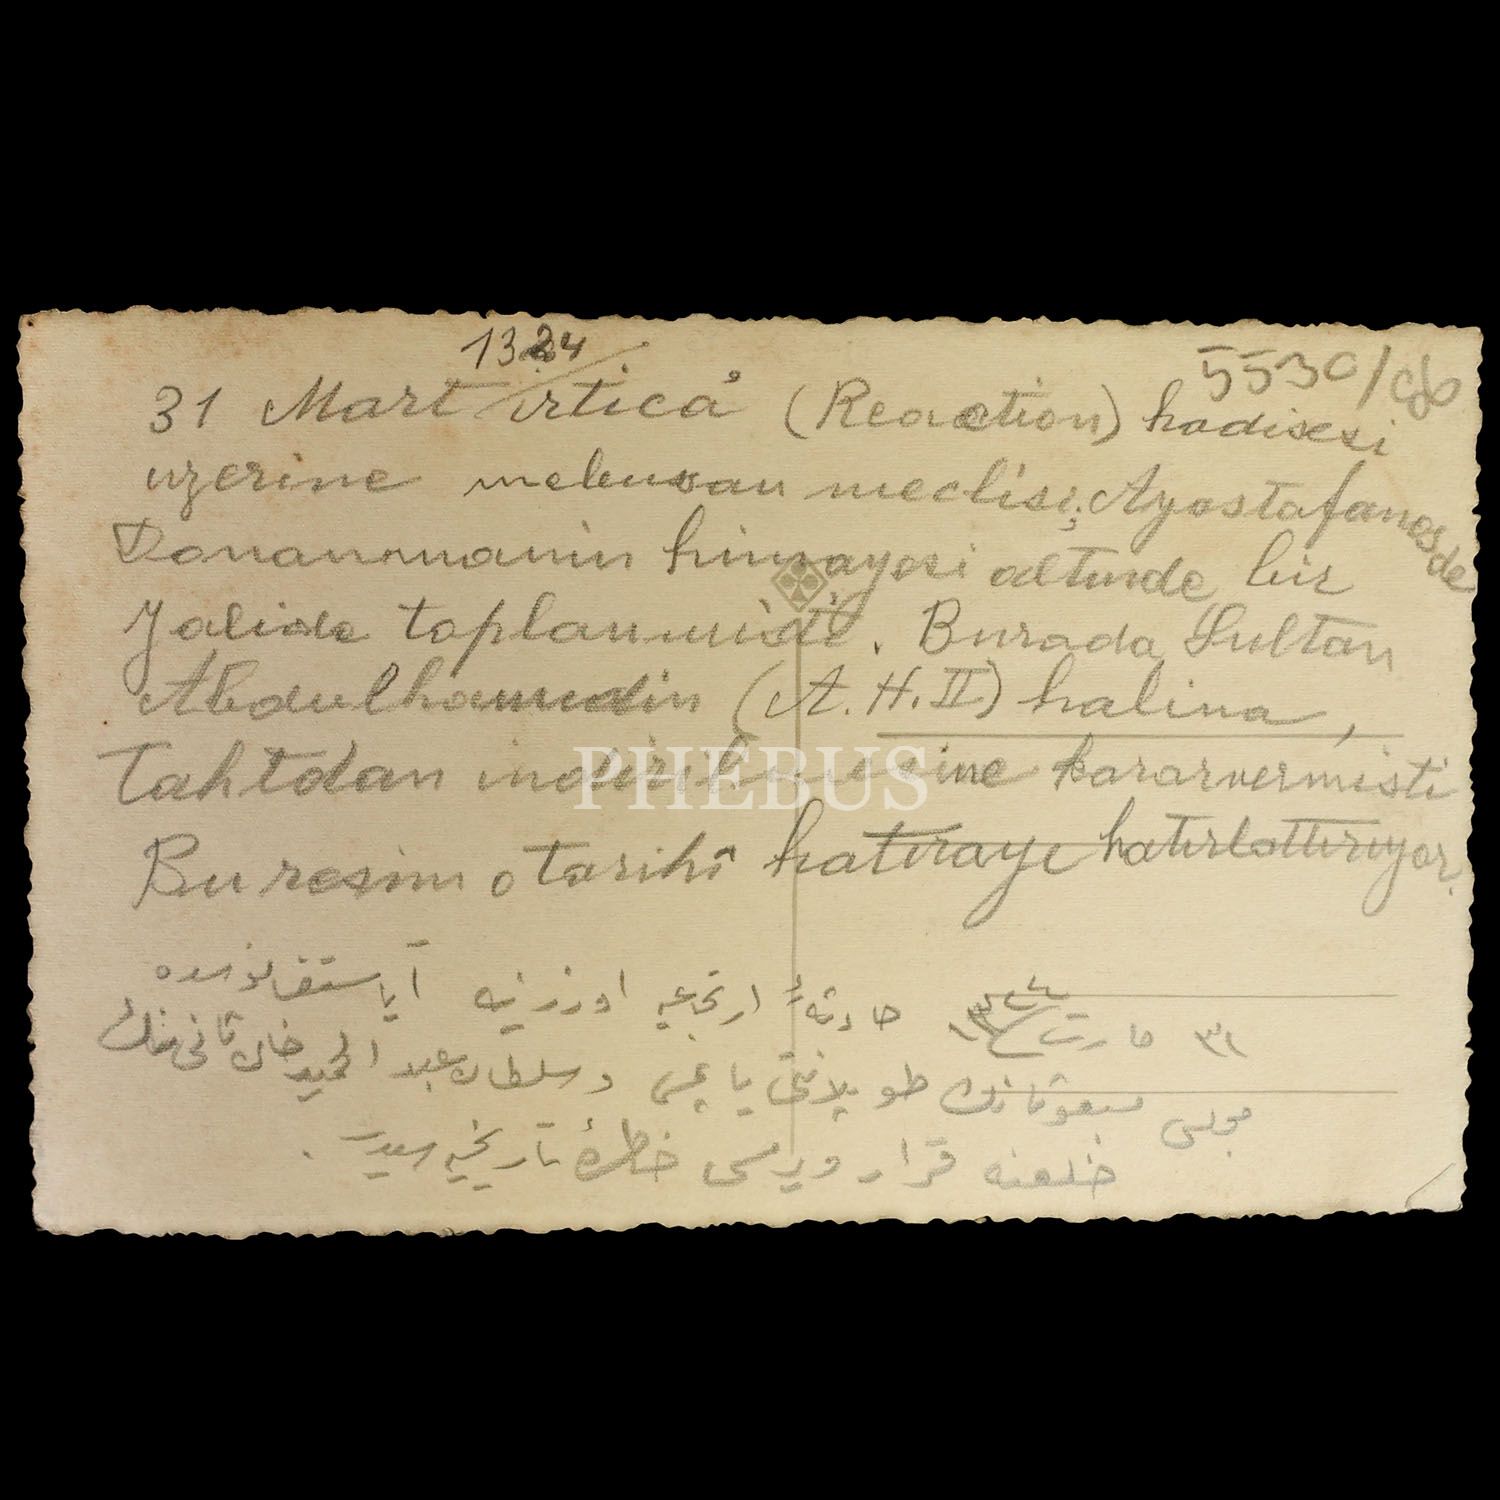 1324
5530/
31 Mart irtica (Reaction) hadisesi
uzerine mebusan meclisi, Ayostafanosde
Donanmanin himayesi altinde bir
Yalida toplanmisti. Burada Sultan
Abdulhamidin (A.H.II) halina,
Tahtdan indirilmesine kararvermisti
Bu resim o tarihî hatirayi hatirlattiriyor.
PHEBUS
٣١ مارت ١٣٢٤ حادثهٔ ارتجاعیه اوزرینه آیاستفانوسده
مجلس مبعوثانك طوپلانتی یاپمسی و سلطان عبد الحمید خان ثانینك
خلعنه قرار ویرمسی خاطرهٔ تاریخیه سیدر.